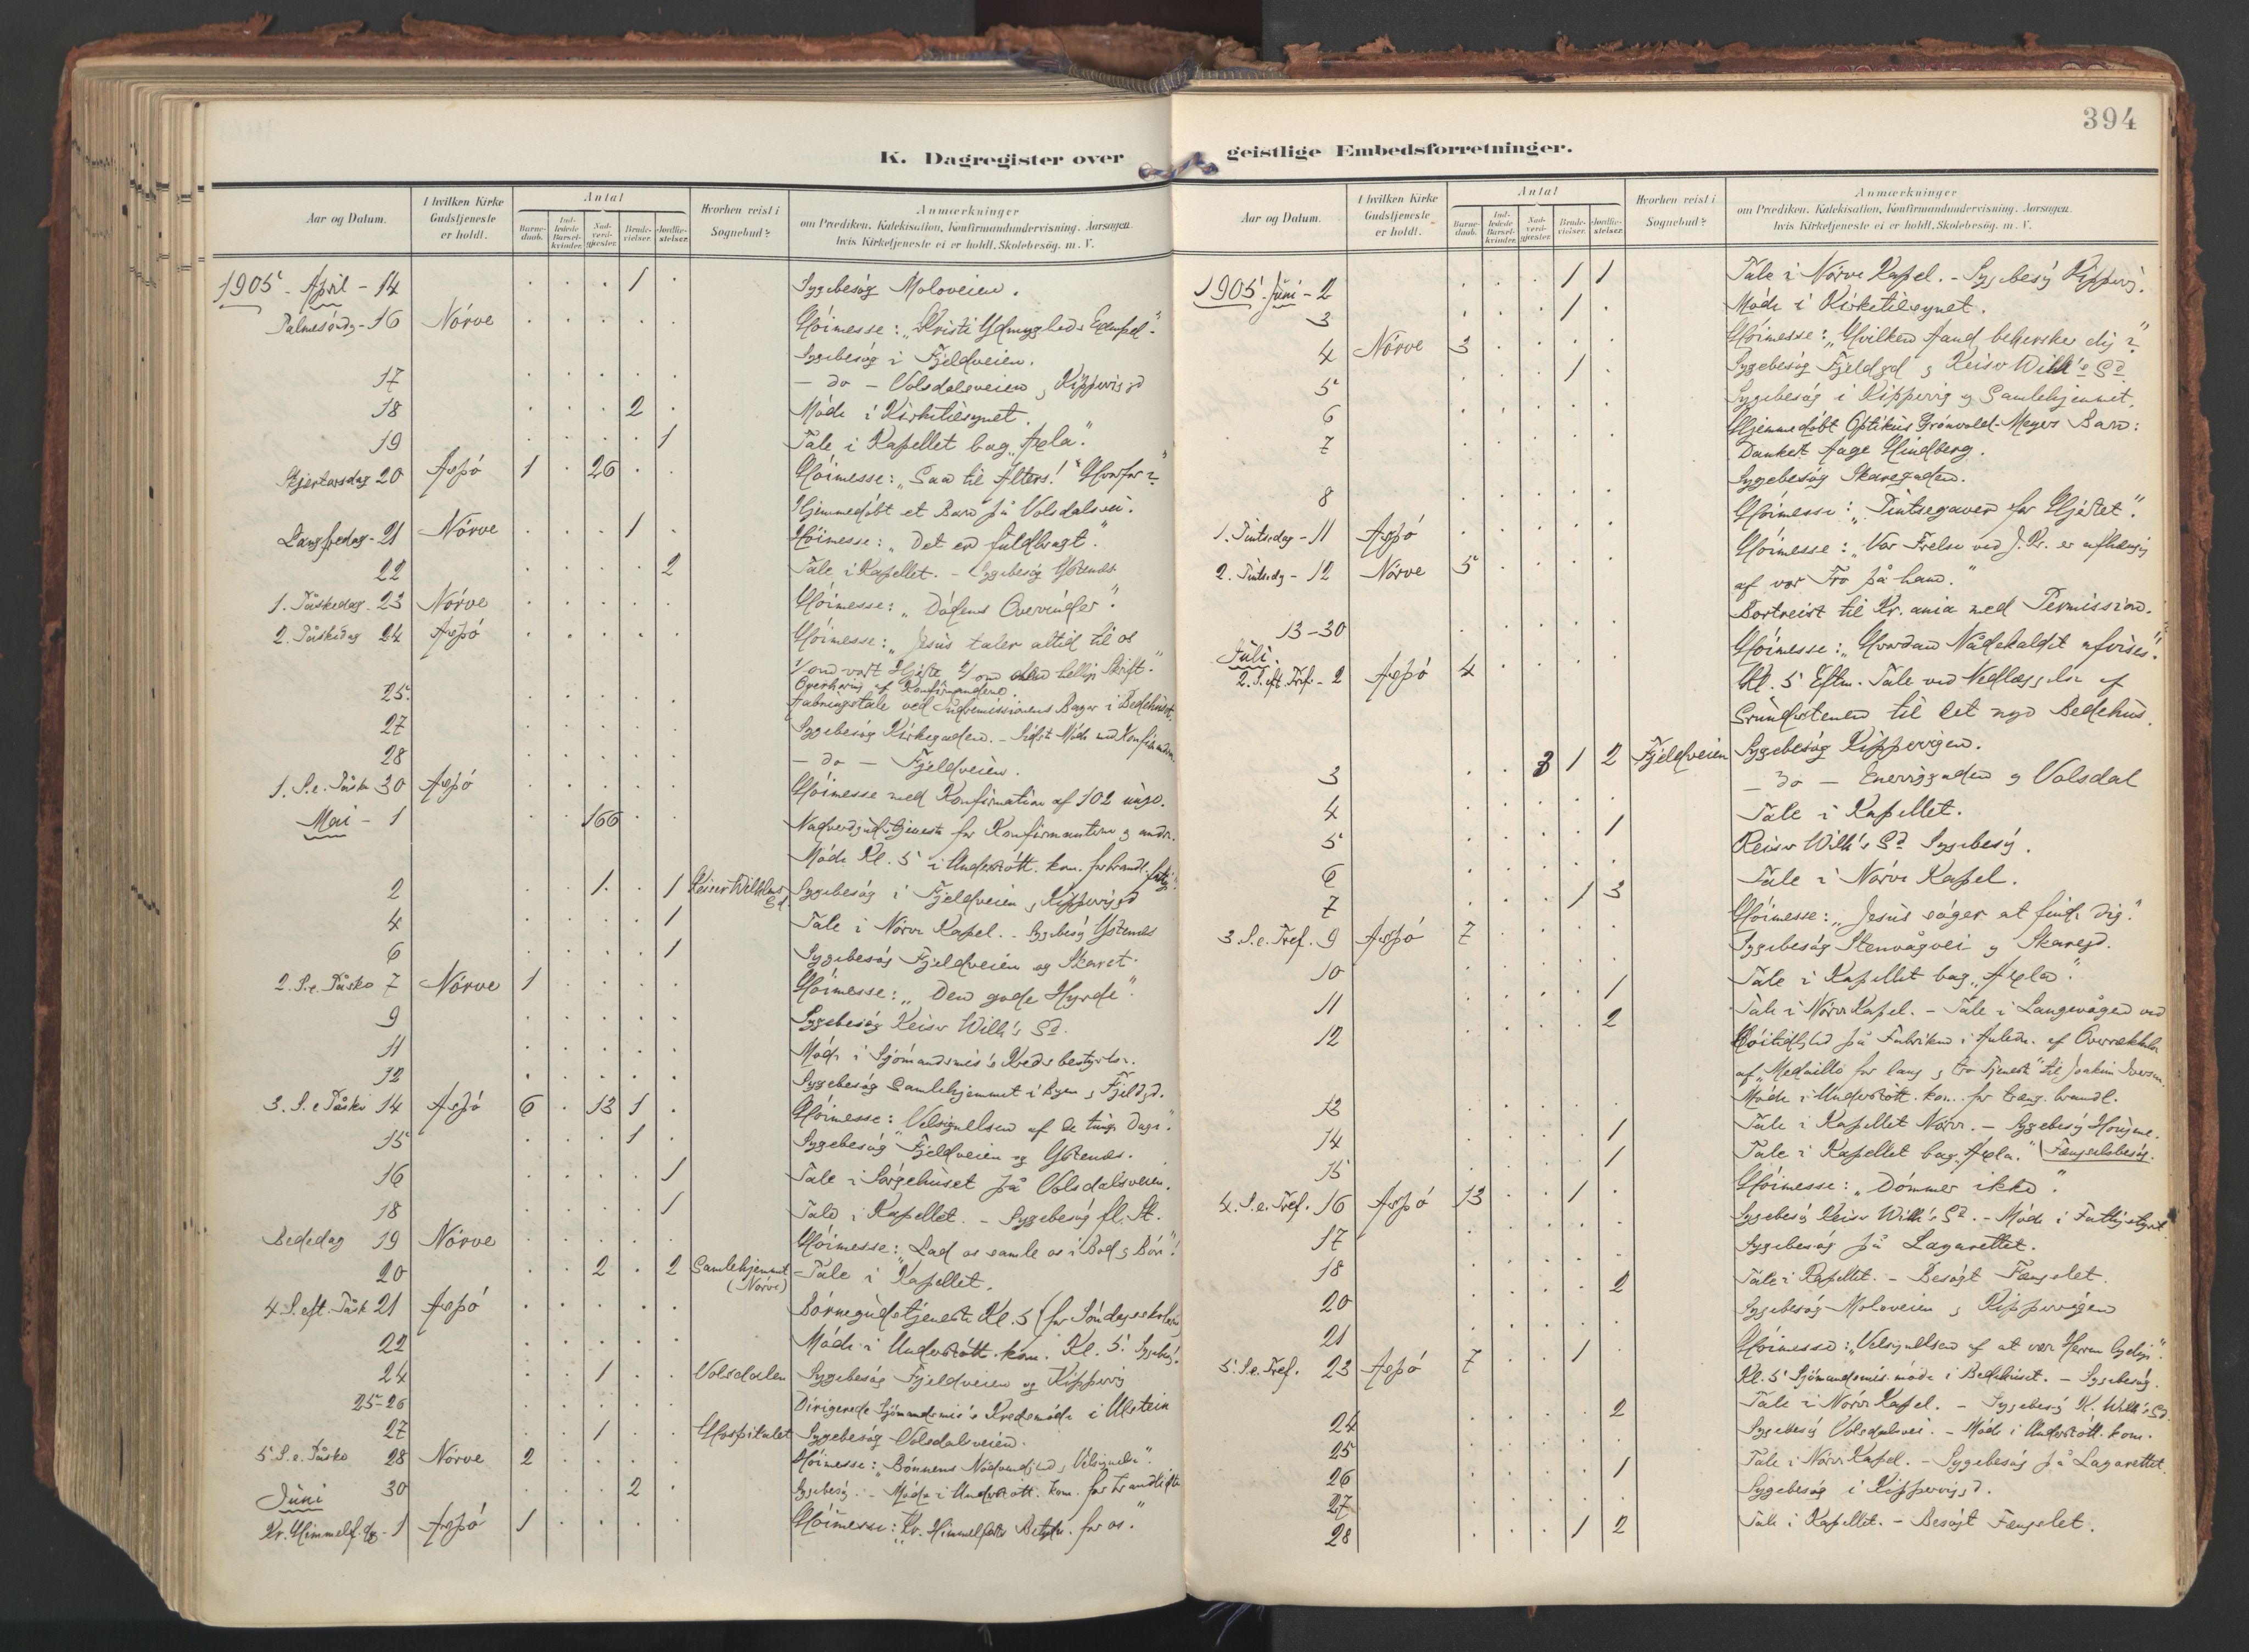 394
K. Dagregister over
geistlige Embedsforretninger.
Aar og Datum.
I hvilken Kirke Gudstjeneste er holdt.
Antal
Barne-daab.
Ind-ledede Barsel-kvinder.
Nad-verd-gjester.
Brude-vielser.
Jordfæ-stelser.
Hvorhen reist i Sognebud?
Anmærkninger
om Prædiken, Katekisation, Konfirmandundervisning, Aarsagen
hvis Kirketjeneste ei er holdt, Skolebesøg, m. V.
1905 - April - 14 . . . 1 . Sygebesøg Moloveien.
Palmesöndg - 16 Nörve . . . . . Höimesse: „Kristi Ydmygheds Exempel."
Sygebesög i Fjeldveien.
17 . . . . . - do - Volsdalsveien og Kipperviggd
18 . . . 2 . Möde i Kirketilsynet.
19 . . . . 1 Tale i Kapellet bag „Axla."
Skjertorsdag 20 Aspö 1 . 26 . . Höimesse: „Saa til Alters! Hvorfor?"
Hjemmedöbt et Barn på Volsdalsvei.
Langfredag - 21 Nörve . . . 1 . Höimesse: „Det er fuldbragt."
22 . . . . 2 Tale i Kapellet. - Sygebesög Ystenes
1. Påskedag - 23 Nörve . . . . . Höimesse: „Dödens Overvinder."
2. Påskedag 24 Aspö . . . . . Höimesse: „Jesus taler altid til os
1/ om vort Hjerte 2/ om den hellige Skrift."
Overhöring af Konfirmanderne.
25. . . . . . Aabningstale ved Indremissionens Bazar i Bedehuset.
27 . . . . . Sygebesög Kirkegaden. - Sidste Möde med Konfirmanderne.
28 . . . . . - do - Fjeldveien.
1. S.e. Påske 30 Aspö . . . . . Höimesse med Konfirmation af 102 unge.
Mai - 1 . . 166 . . Nadverdgudstjeneste for Konfirmanterne og andre.
Möde Kl. 5 i Understött. kom. for brandl.
2 . . 1 . 1 Keiser Wilhelms Gd. Sygebesög i Fjeldveien og Kipperviggd
4 . . . . 1 Tale i Nörve Kapel. - Sygebesög Ystenes
6 . . . . 1 Sygebesög Fjeldveien og Skaret.
2. S.e. Påske 7 Nörve 1 . . . . Höimesse: „Den gode Hyrde."
9 . . . . . Sygebesög Keiser Wilh's Gd.
11 . . . . . Möde i Sjömandsmis's Kredsbestyrelse.
12 . . . . . Sygebesög Gamlehjemmet i Byen og Fjeldgd.
3. S. e Påske 14 Aspö 6 . 13 1 . Höimesse: „Velsignelsen af de tunge Dage."
15 . . . 1 . Sygebesög Fjeldveien og Ystenes.
16 . . . . 1 Tale i Sörgehuset på Volsdalsveien.
18 . . . . 1 Tale i Kapellet. - Sygebesög fl. St.
Bededag 19 Nörve . . . . . Höimesse: „Lad os samle os i Bod og Bön"!
20 . . 2 . 2 Gamlehjemmet (Nörve) Tale i Kapellet.
4. S. eft. Påsk 21 Aspö . . . . . Börnegudstjeneste Kl. 5 (for Söndagsskolerne)
22 . . . . . Möde i Understött. kom. Kl. 5. Sygebesög.
24 . . 1 . . Volsdalen Sygebesög Fjeldveien og Kippervig
25-26 . . . . . Dirigerede Sjömandsmis's Kredsmöde i Ulstein
27 . . 1 . . Hospitalet Sygebesög Volsdalsveien.
5. S. e. Påske 28 Nörve 2 . . . . Höimesse: „Bönnens Nödvendighed og Velsignelse."
30 . . . 2 . Sygebesög. - Möde i Understött. kom. for brandlidte
Juni
Kr. Himmelf. dg. - 1 Aspö 1 . . . . Höimesse: „Kr. Himmelfarts Betydn. for os."
Aar og Datum.
I hvilken Kirke Gudstjeneste er holdt.
Antal
Barne-daab.
Ind-ledede Barsel-kvinder.
Nad-verd-gjester.
Brude-vielser.
Jordfæ-stelser.
Hvorhen reist i Sognebud?
Anmærkninger
om Prædiken, Katekisation, Konfirmandundervisning, Aarsagen
hvis Kirketjeneste ei er holdt, Skolebesøg, m. V.
1905 Juni - 2 . . . 1 1 Tale i Nörve Kapel. - Sygebesög Kippervig.
3 . . . 1 . Möde i Kirketilsynet.
4 Nörve 3 . . . . Höimesse: „Hvilken Aand behersker dig?"
5 . . . 1 . Sygebesög Fjeldgd og Keiser Wilh's Gd.
6 . . . . . Sygebesög i Kippervig og Gamlehjemmet.
7 . . . . . Hjemmedöbt Optikus Grönvold-Meyers Barn:
Dankert Aage Hindberg.
8 . . . . . Sygebesög Skaregaden.
1. Pintsedag - 11 Aspö . . . . . Höimesse: „Pintsegaven for Hjertet."
2. Pintsedg - 12 Nörve 5 . . . . Höimesse: „Vor Frelse ved J. Kr. er afhængig
af vor Tro på ham."
13-30 . . . . . Bortreist til Kr.ania med Permission.
Juli.
2. S. eft. Tref. - 2 Aspö 4 . . . . Höimesse: „Hvordan Nådekaldet afvises."
Kl. 5 Eftm. Tale ved Nedlæggelse af
Grundstenen til det nye Bedehus.
3 . . 3 1 2 Fjeldveien Sygebesög Kippervigen.
4 . . . . . - do - Enerhaugden og Volsdal
5 . . . . 1 Tale i Kapellet.
6 . . . . . Keiser Wilh's Gd Sygebesög.
7 . . . 1 3 Tale i Nörve Kapel.
3. S.e. Tref. 9 Aspö 7 . . . . Höimesse: „Jesus söger at finde Dig."
10 . . . . . Sygebesög Stenvågvei og Skaregd.
11 . . . . 1 Tale i Kapellet bag „Axla."
12 . . . . 2 Tale i Nörve Kapel. - Tale i Langevågen ved
Höitidlighed på Fabriken i Anledn. af Overrækkelse
af „Medaille for lang og tro Tjeneste" til Joakim Iversen.
13 . . . . . Möde i Understött. kom. for træng. brandl.
14 . . . . 1 Tale i Kapellet Nörve. - Sygebesög
15 . . . . 1 Tale i Kapellet bag „Axla." Fængselsbesög.
4. S.e. Tref. 16 Aspö 13 . . 1 . Höimesse: „Dömmer ikke."
17 . . . . . Sygebesög Keiser Wilh's Gd. - Möde i Fattigstyret
18 . . . . . Sygebesög på Lazarettet.
20 . . . . 2 Tale i Kapellet. - Besögt Fængslet.
21 . . . . . Sygebesög Moloveien og Kippervigen
5. S.e. Tref. 23 Aspö 7 . . 1 . Höimesse: „Velsignelsen af at være Herren lydig."
Kl. 5 Sjömandsmis. möde i Bedehuset. - Sygebesög.
24 . . . . 2 Tale i Nörve Kapel. - Sygebesög K. Wilh's Gd.
25 . . . . . Sygebesög Volsdalsvei. - Möde i Understött. kom.
26 . . . . 1 Tale i Nörve Kapel. - Sygebesög på Lazarettet.
27 . . . . . Sygebesög i Kipperviggd.
28 . . . 1 2 Tale i Kapellet. - Besögt Fængslet.